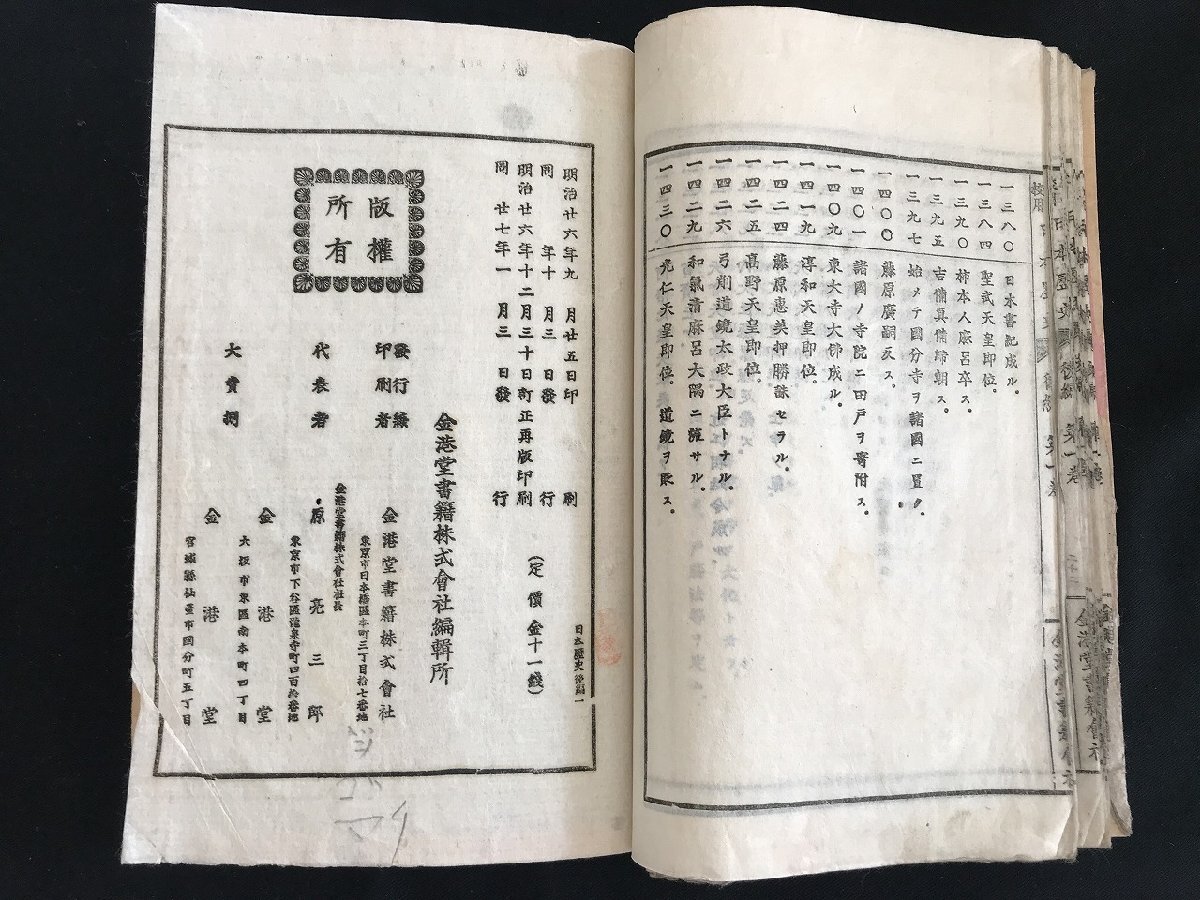 一三八〇 日本書紀成ル。
一三八四 聖武天皇即位。
一三九〇 柿本人麻呂卒ス。
一三九五 吉備真備歸朝ス。
一三九七 始メテ國分寺ヲ諸國ニ置ク。
一四〇〇 藤原廣嗣反ス。
一四〇一 諸國ノ寺院ニ田戸ヲ寄附ス。
一四〇九 東大寺大佛成ル。
一四一九 淳和天皇即位。
一四二四 藤原惠美押勝誅セラル。
一四二五 高野天皇即位。
一四二六 弓削道鏡太政大臣トナル。
一四二九 和氣清麻呂大隅ニ竄サル。
一四三〇 光仁天皇即位。道鏡ヲ貶ス。
金港堂書籍會社
日本歷史後編一
明治廿六年九月廿五日印刷
同年十月三日發行
明治廿六年十二月三十日訂正再版印刷
同廿七年一月三日發行
(定價金十一錢)
版權所有
金港堂書籍株式會社編輯所
發行兼印刷者 金港堂書籍株式會社
東京市日本橋區本町三丁目拾七番地
金港堂書籍株式會社社長
代表者 原亮三郎
東京市下谷區龍泉寺町四百拾番地
大賣捌 金港堂
大坂市東區南本町四丁目
金港堂
宮城縣仙臺市國分町五丁目